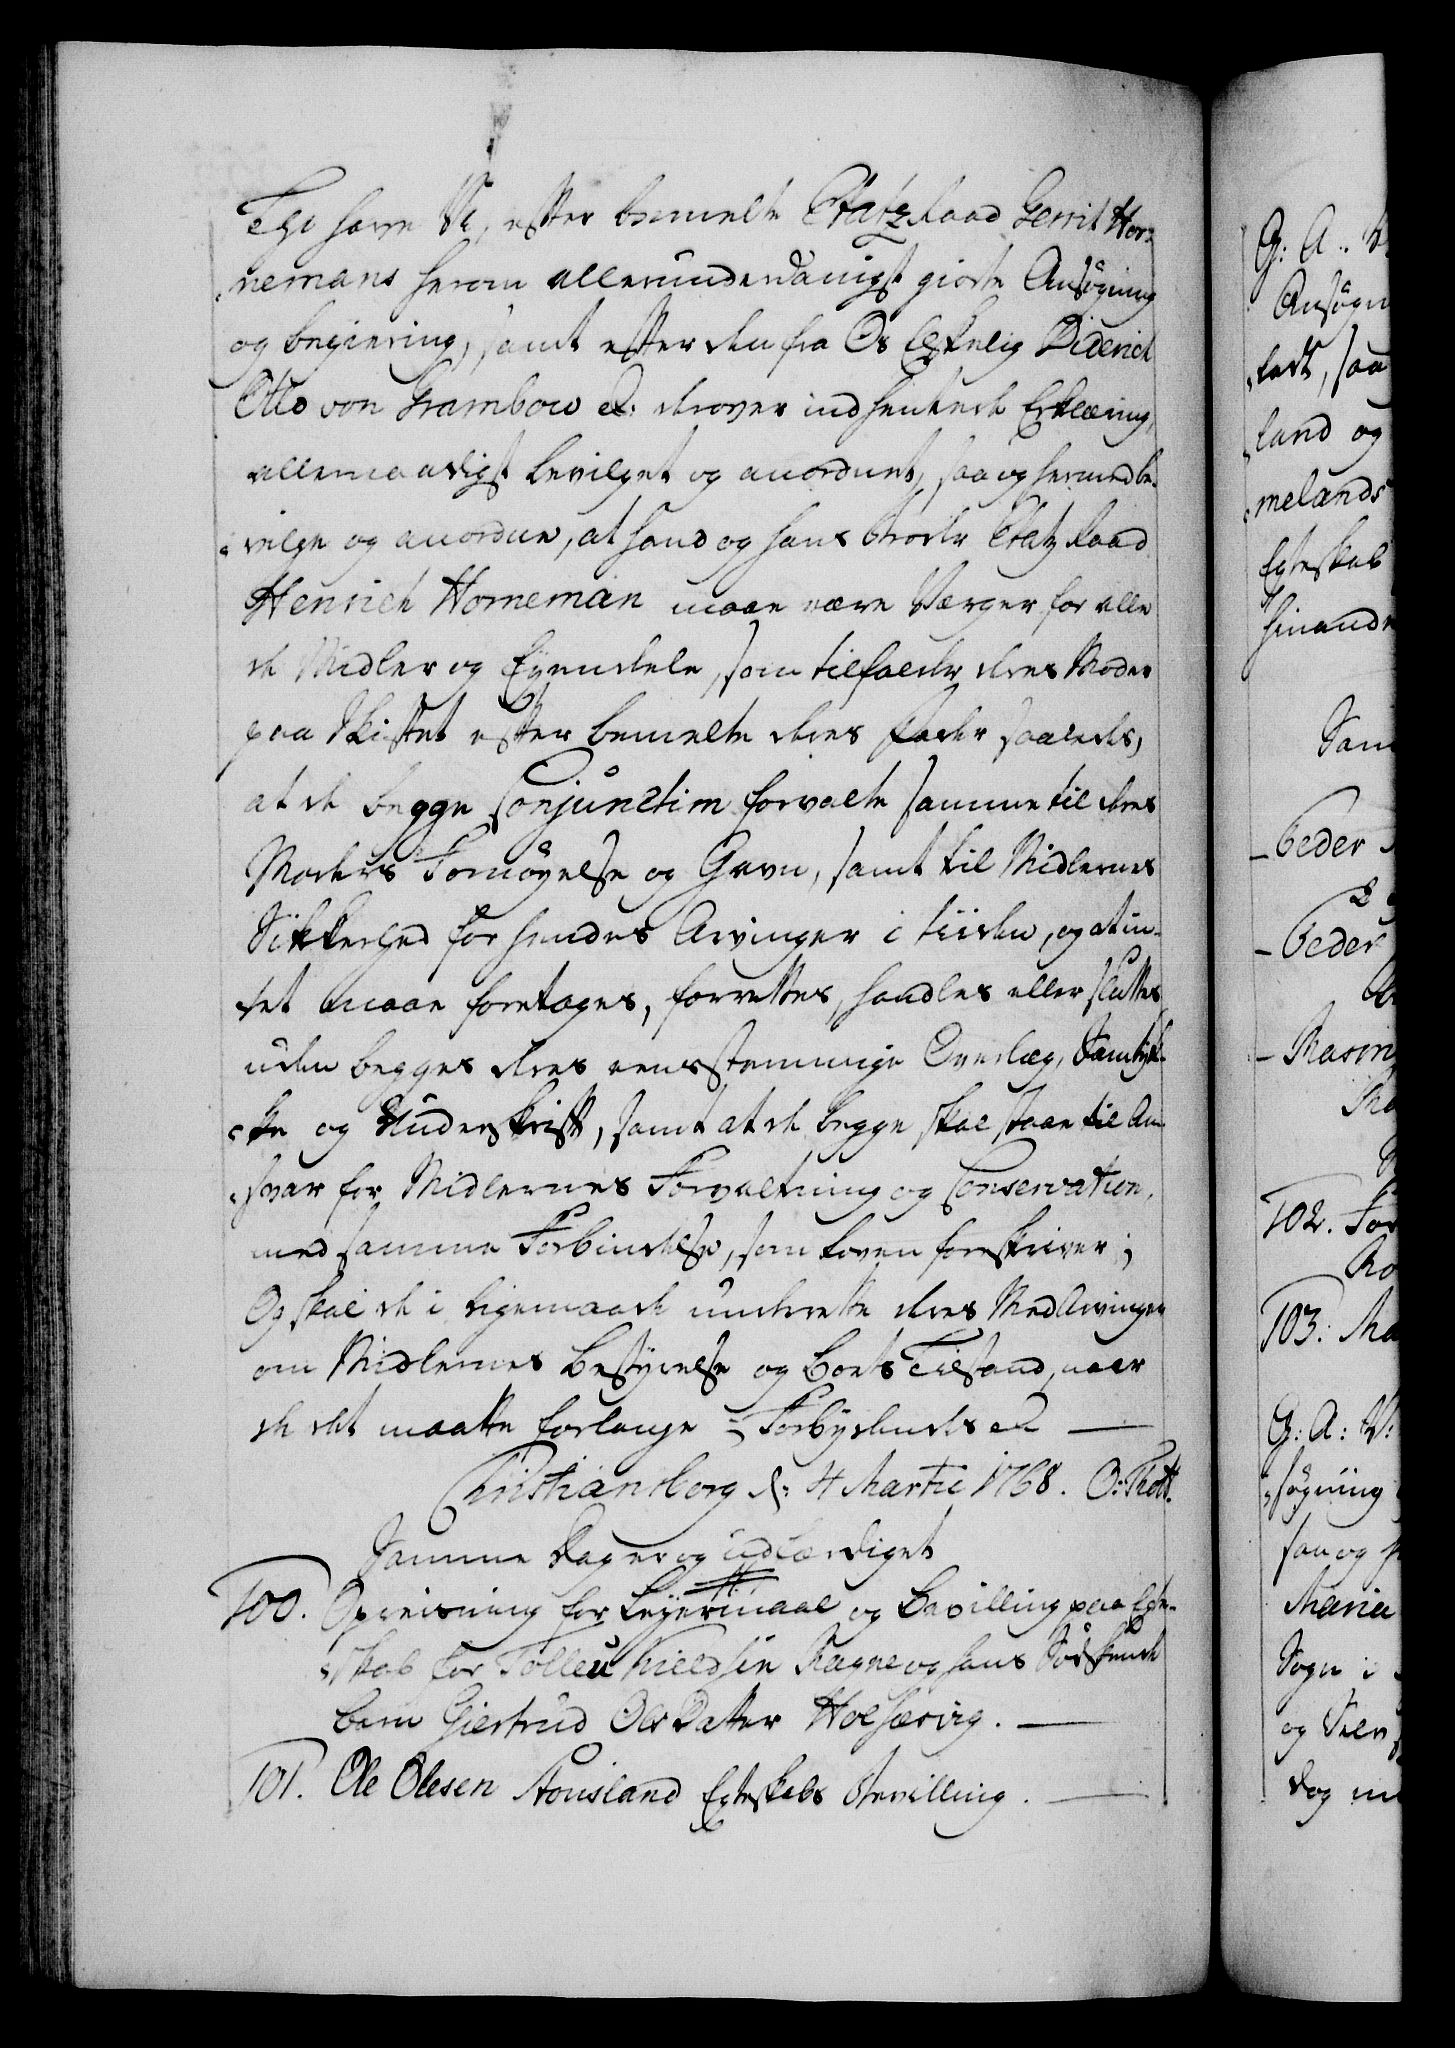 Thi have Vi, efter bemelte Etatz Raad Gerrit Hor-
nemans herom allerunderdanigst giorte Ansøgning
og begiering, samt efter den fra Os Elskelig Diderich
Otto von Grambow &: derover indhentede Erklæring,
allernaadigst bevilget og anordnet, saa og hermed be-
vilge og anordne, at hand og hans Broder Etatz Raad
Henrich Horneman maae være Værger for alle
de Midler og Eyendele, som tilfalder deres Moder
paa Skiftet efter bemelte deres Fader saaledes,
at de begge Conjunctim forvalte samme til deres
Moders Fornøyelse og Gavn, samt til Midlernes
Sikkerhed for hendes Arvinger i tiiden, og at in-
tet maae foretages, forrettes, handles eller sluttes
uden begges deres eensstemmige Overlæg, Samtyk-
ke og Underskrift, samt at de begge skal staae til An-
svar for Midlernes Forvaltning og Conservation,
med samme Forbindelse, som Loven foreskriver;
Og skal de i ligemaade underrette deres Med Arvinger
om Midlernes Bestyrelse og Boets Tilstand, naar
de det maatte forlange; Forbydendes &
Christiansborg d: 4 Martii 1768. O: Thott.
Samme Dag er og udfærdiget
100. Opreisning for Leyermaal og Bevilling paa Egte-
skab for Tolleu Kieldsen og hans Sødskende
barn Giertrud Ols Datter Holhervig.
101. Ole Olesen Egteskabs Bevilling.
G: A: V:
Ansøgn
fadt, saa
land og
melands
Egteskab
hinand
Sam
Peder
Peder
Rasm
102. For
103. Ma
G: A: V:
søgning
saa og h
Maria
Sogn i
og
dog m